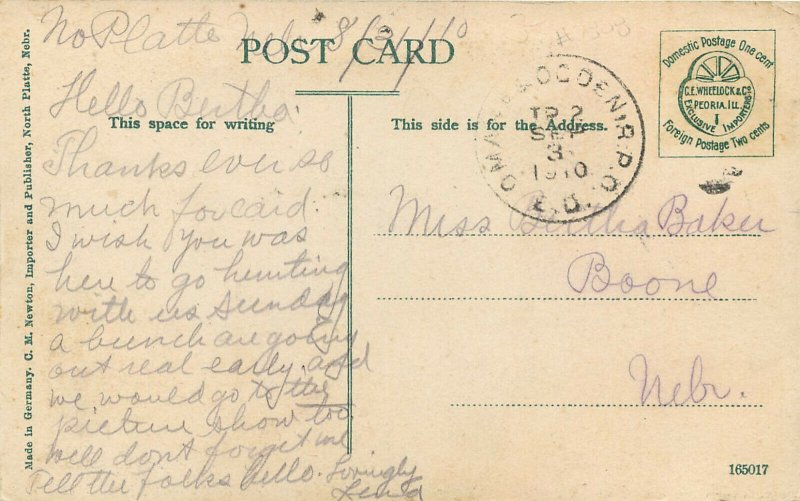 No Platte Neb. 8/31/10
POST CARD
Hello Bertha
This space for writing
Thanks ever so
much for card.
I wish you was
here to go hunting
with us Sunday
a bunch are going
out real early, and
we would go to the
picture show too.
well don't forget me
Tell the folks hello. Lovingly
This side is for the Address.
OMAHA & OGDEN R.P.O.
TR 2
SEP
3
1910
E.D.
Domestic Postage One cent
C.E. WHEELOCK & CO
PEORIA. ILL.
EXCLUSIVE IMPORTERS
Foreign Postage Two cents
Miss Bertha Baker
Boone
Nebr.
165017
Made in Germany. C. M. Newton, Importer and Publisher, North Platte, Nebr.